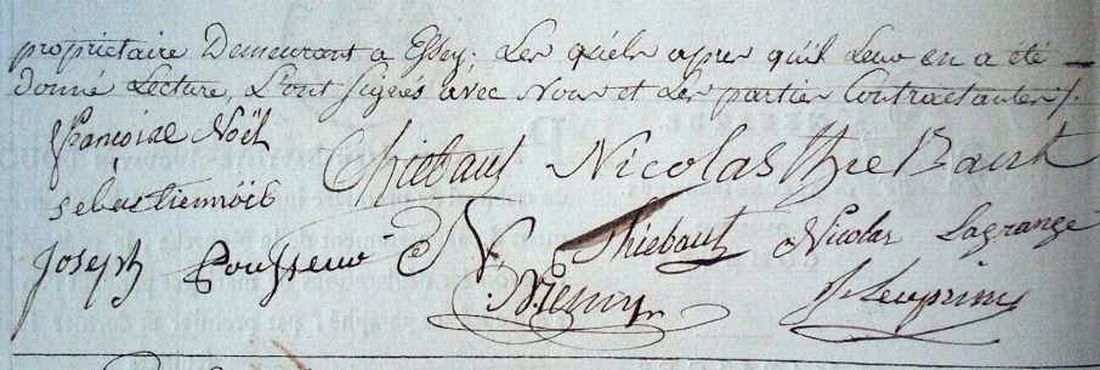 proprietaire Demeurant a Essey; Les quels apres qu'il Leur en a été
Donné Lecture, L'ont Signés avec Nous et Les parties Contractantes /.
françoise Noël
Thiebaut Nicolas thieBaut
sebastiennoël
Joseph N Thiebaut Nicolas Lagrange